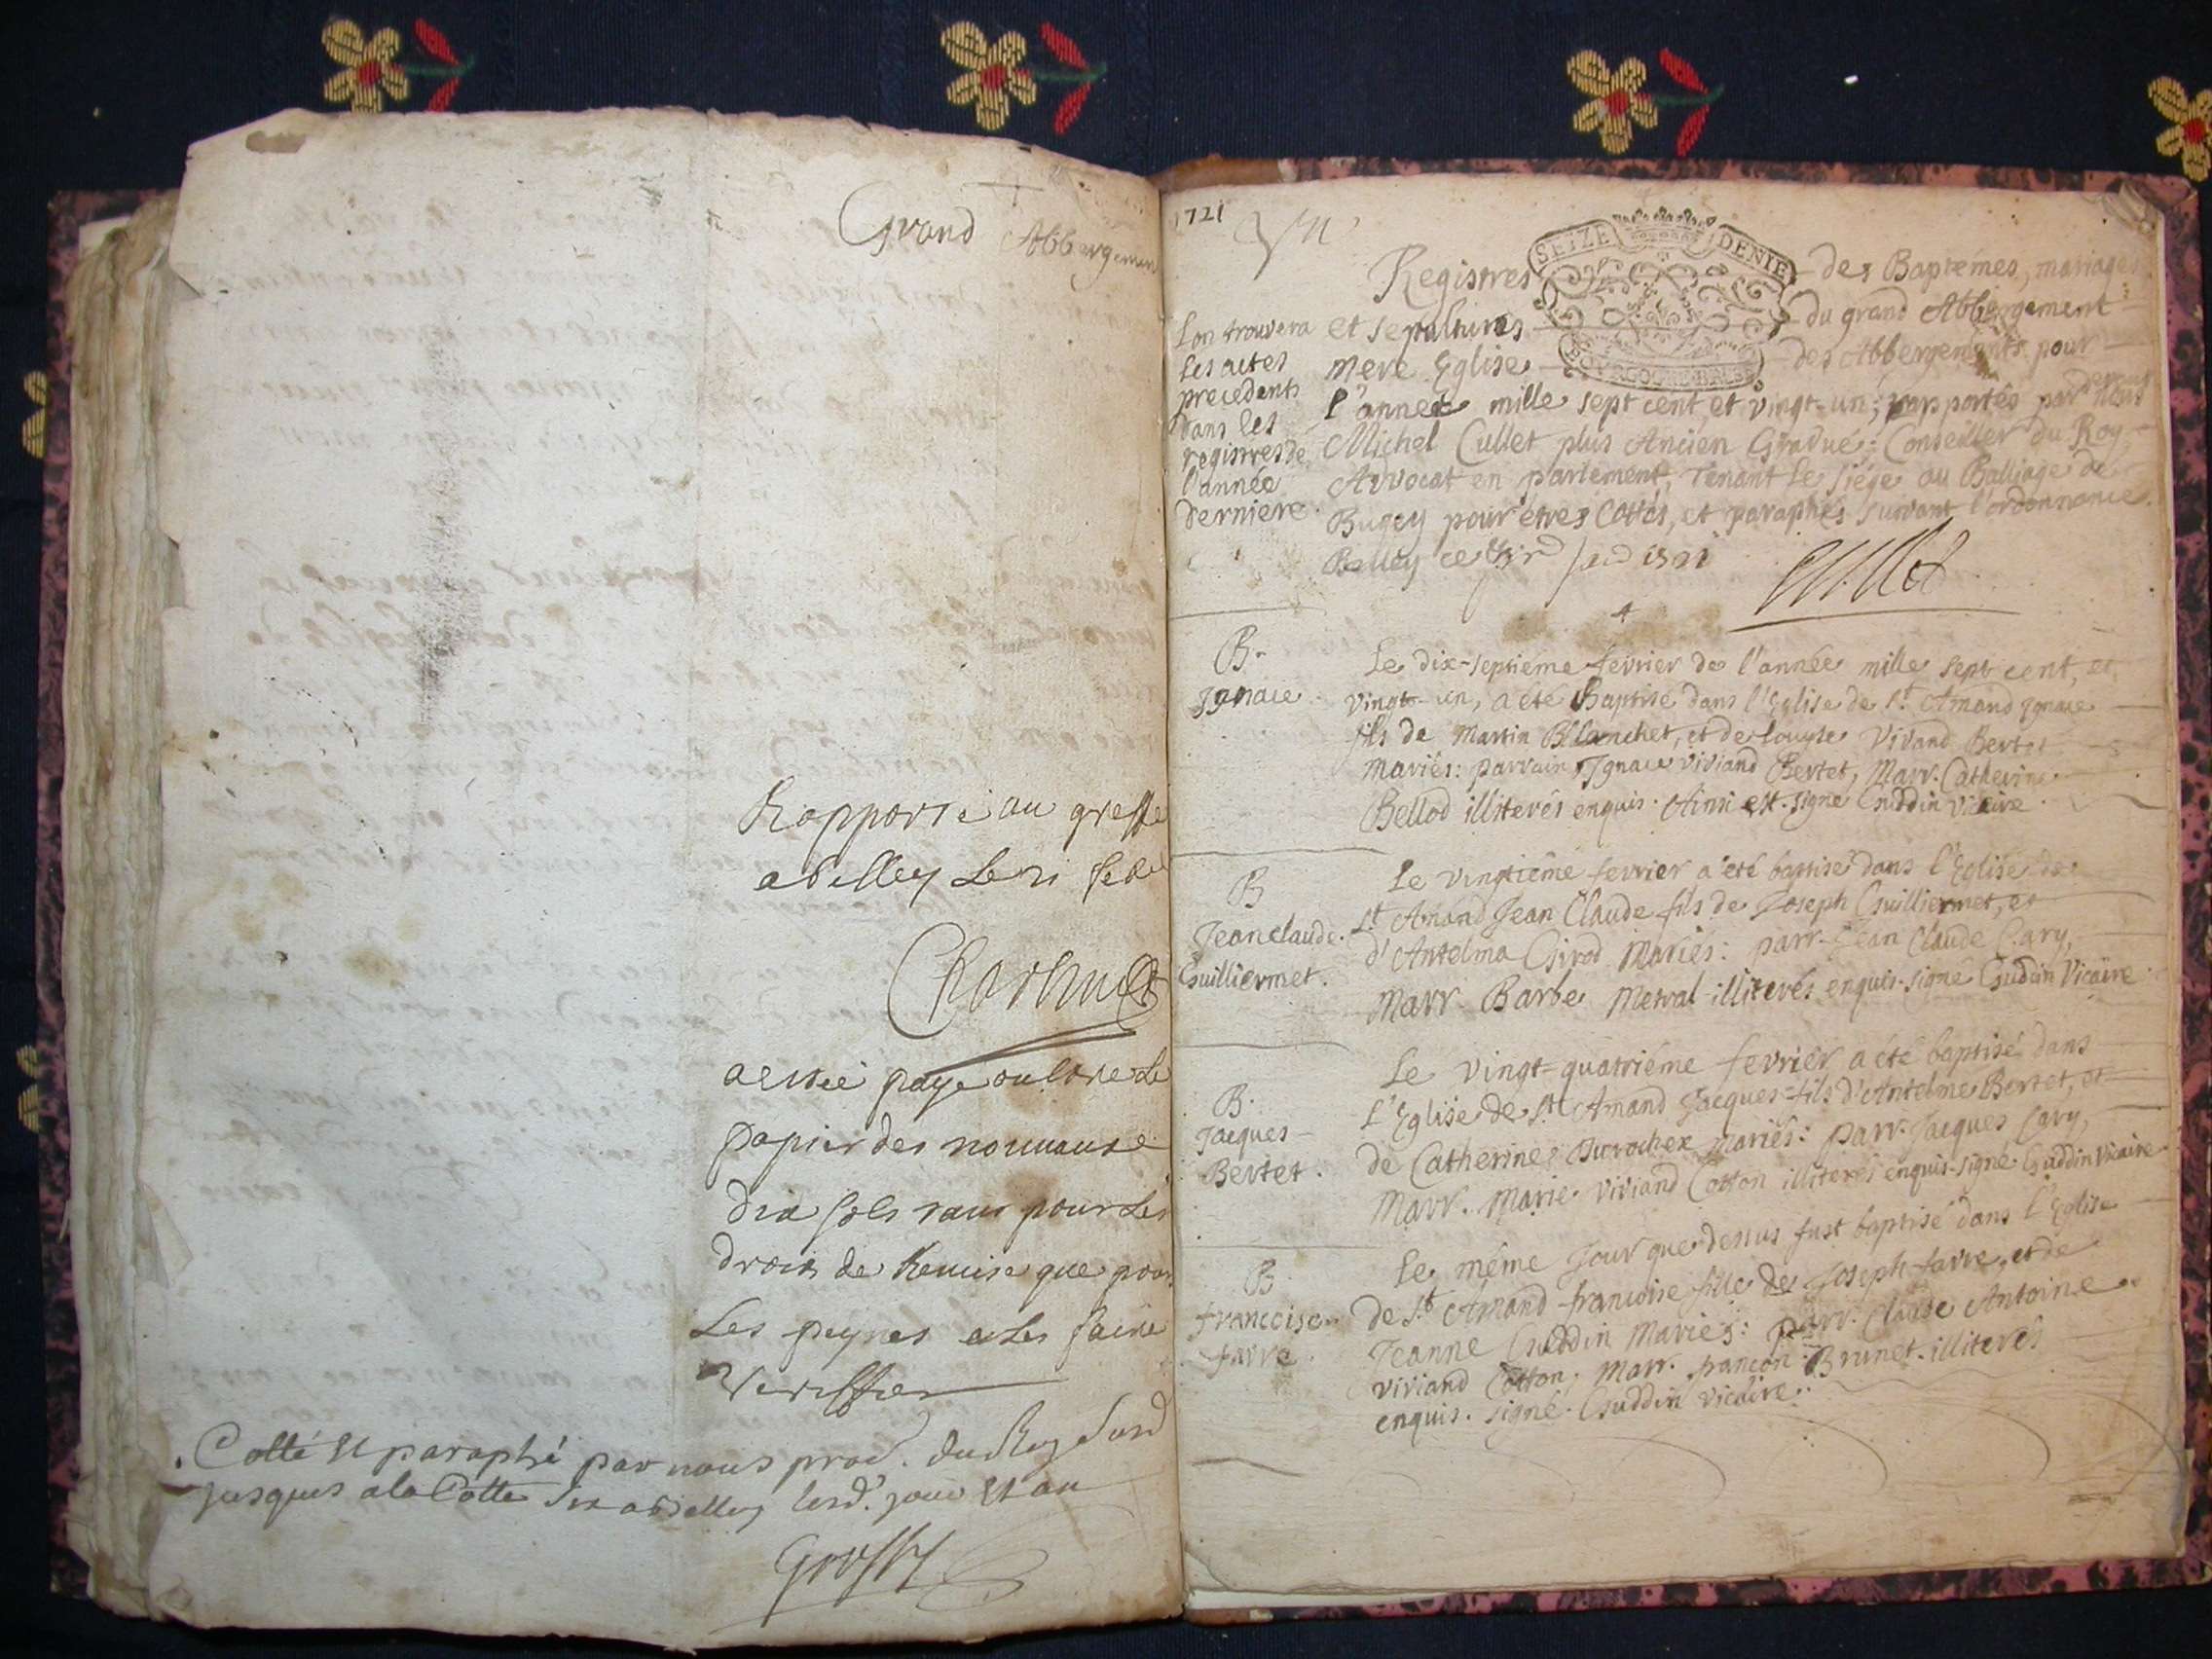 Grand Abbergement
Rapporté au greffe
a belley le 21
a esté payé oultre le
papier des nouveaux
dix sols tant pour les
droits de Remise que pour
Les peynes et les faire
Veriffier
Cotté et paraphé par nous proc. du Roy
jusques a la Cotte six a Belley lesd. jour et an
Grossy
1721
SEIZE DENIE
Registres des Baptémes, mariages
et sepultures du grand Abbergement
mere Eglise des Abbergements pour
l'année mille sept cent, et vingt-un; rapportés par devant nous
Michel Cullet plus Ancien Gradué: Conseiller du Roy,
Avvocat en parlement, Tenant le siége au Balliage de
Bugey pour étres Cottés, et paraphés suivant l'ordonnance.
Belley ce
Cullet
L'on trouvera
les actes
precedents
dans les
registres de
l'année
derniere.
B.
Ignace
Le dix-septiéme fevrier de l'année mille sept cent, et
vingt-un, a été Baptisé dans l'Eglise de St. Amand Ignace
fils de Martin Blanchet, et de Vivand Bertet
mariés: parrain, Ignace viviand Bertet, Marr. Catherine
Bellod illiterés enquis. Ainsi est signé Guddin Vicaire.
B
Jeanclaude
Guilliermet.
Le vingtiéme fevrier a été baptisé dans l'Eglise de
St. Amand Jean Claude fils de Joseph Guilliermet, et
d'Antelma Girod Mariés: parr. Jean Claude Cary,
Marr. Barbe Metral illiterés enquis. signé Guddin Vicaire.
B.
Jacques
Bertet.
Le vingt-quatriéme fevrier a été baptisé dans
l'Eglise de St. Amand Jacques fils d'Antelme Bertet, et
de Catherine Durochex mariés: parr. Jacques Cary,
Marr. Marie viviand Cotton illiterés enquis. signé Guddin Vicaire
B
francoise
favre.
Le méme Jour que dessus fust baptisé dans l'Eglise
de St. Amand francoise fille de Joseph favre, et de
Jeanne Guddin Mariés: parr. Claude Antoine
viviand Cotton. Marr. françon Brunet. illiterés
enquis. signé. Guddin vicaire.